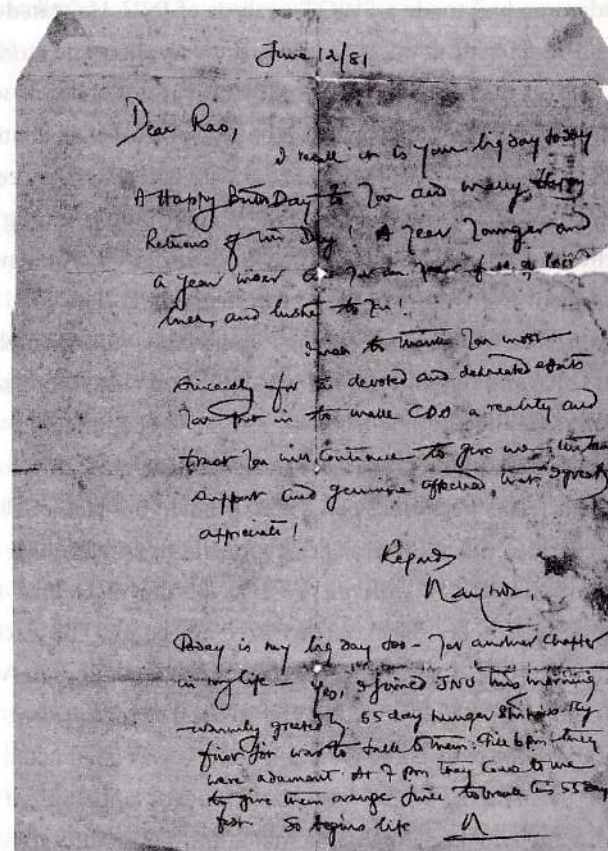 June 12/81
Dear Rao,
I recall it is your big day today
A Happy Birth Day to you and many Happy
Returns of the Day! A year younger and
a year wiser
lines, and lushes to you!
I wish to thank you most
sincerely for the devoted and dedicated efforts
you put in to make CDS a reality and
trust you will continue to give me
support and genuine affection, that I greatly
appreciate!
Regards
Today is my big day too - for another chapter
in my life - Yes, I joined JNU this morning
- warmly greeted by 55 day hunger strikers. My
first job was to talk to them. Till 6 pm they
were adamant. At 7 pm they came to me
to give them orange juice to break his 55 day
fast. So begins life